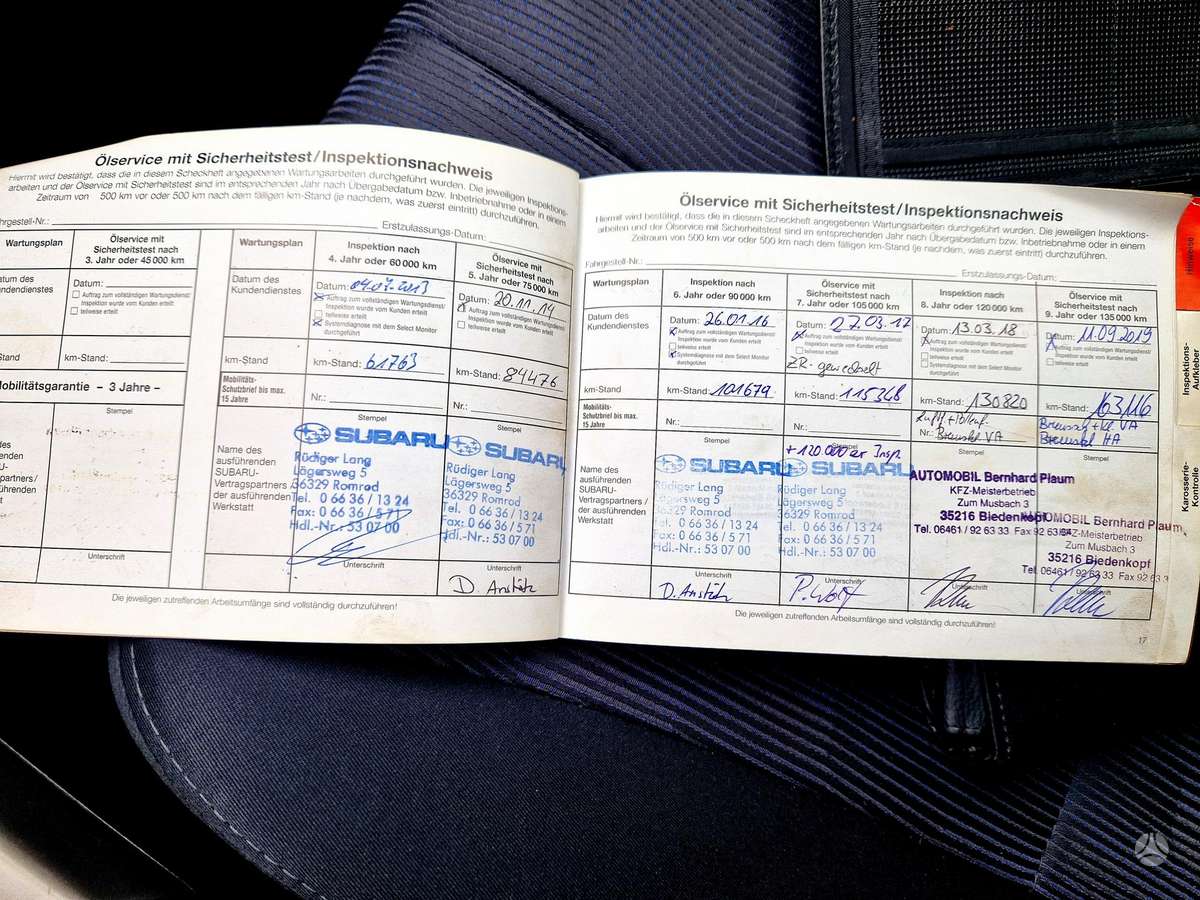 Ölservice mit Sicherheitstest/Inspektionsnachweis
Hiermit wird bestätigt, dass die in diesem Scheckheft angegebenen Wartungsarbeiten durchgeführt wurden. Die jeweiligen Inspektions-
arbeiten und der Ölservice mit Sicherheitstest sind im entsprechenden Jahr nach Übergabedatum bzw. Inbetriebnahme oder in einem
Zeitraum von 500 km vor oder 500 km nach dem fälligen km-Stand (je nachdem, was zuerst eintritt) durchzuführen.
ahrgestell-Nr.:
Erstzulassungs-Datum:
Wartungsplan
Ölservice mit
Sicherheitstest nach
3. Jahr oder 45 000 km
atum des
undendienstes
Datum:
Auftrag zum vollständigen Wartungsdienst/
Inspektion wurde vom Kunden erteilt
teilweise erteilt
Stand
km-Stand:
Mobilitätsgarantie – 3 Jahre –
Stempel
Unterschrift
Wartungsplan
Inspektion nach
4. Jahr oder 60 000 km
Ölservice mit
Sicherheitstest nach
5. Jahr oder 75 000 km
Datum des
Kundendienstes
Datum: 04.07.2013
Auftrag zum vollständigen Wartungsdienst/
Inspektion wurde vom Kunden erteilt
teilweise erteilt
Systemdiagnose mit dem Select Monitor
durchgeführt
Datum: 20.11.14
Auftrag zum vollständigen Wartungsdienst/
Inspektion wurde vom Kunden erteilt
teilweise erteilt
km-Stand
km-Stand: 61763
km-Stand: 84476
Mobilitäts-
Schutzbrief bis max.
15 Jahre
Nr.:
Nr.:
Name des
ausführenden
SUBARU-
Vertragspartners /
der ausführenden
Werkstatt
Stempel
SUBARU
Rüdiger Lang
Lägersweg 5
36329 Romrod
Tel. 0 66 36 / 13 24
Fax: 0 66 36 / 5 71
Hdl.-Nr.: 53 07 00
Unterschrift
Stempel
SUBARU
Rüdiger Lang
Lägersweg 5
36329 Romrod
Tel. 0 66 36 / 13 24
Fax: 0 66 36 / 5 71
Hdl.-Nr.: 53 07 00
Unterschrift
Die jeweiligen zutreffenden Arbeitsumfänge sind vollständig durchzuführen!
Ölservice mit Sicherheitstest/Inspektionsnachweis
Hiermit wird bestätigt, dass die in diesem Scheckheft angegebenen Wartungsarbeiten durchgeführt wurden. Die jeweiligen Inspektions-
arbeiten und der Ölservice mit Sicherheitstest sind im entsprechenden Jahr nach Übergabedatum bzw. Inbetriebnahme oder in einem
Zeitraum von 500 km vor oder 500 km nach dem fälligen km-Stand (je nachdem, was zuerst eintritt) durchzuführen.
Fahrgestell-Nr.:
Erstzulassungs-Datum:
Wartungsplan
Inspektion nach
6. Jahr oder 90 000 km
Ölservice mit
Sicherheitstest nach
7. Jahr oder 105 000 km
Inspektion nach
8. Jahr oder 120 000 km
Ölservice mit
Sicherheitstest nach
9. Jahr oder 135 000 km
Datum des
Kundendienstes
Datum: 26.01.16
Auftrag zum vollständigen Wartungsdienst/
Inspektion wurde vom Kunden erteilt
teilweise erteilt
Systemdiagnose mit dem Select Monitor
durchgeführt
Datum: 27.03.17
Auftrag zum vollständigen Wartungsdienst/
Inspektion wurde vom Kunden erteilt
teilweise erteilt
ZR. gewechselt
Datum: 13.03.18
Auftrag zum vollständigen Wartungsdienst/
Inspektion wurde vom Kunden erteilt
teilweise erteilt
Systemdiagnose mit dem Select Monitor
durchgeführt
Datum: 11.09.2019
Auftrag zum vollständigen Wartungsdienst/
Inspektion wurde vom Kunden erteilt
teilweise erteilt
km-Stand
km-Stand: 101679
km-Stand: 115348
km-Stand: 130820
km-Stand: 163116
Mobilitäts-
Schutzbrief bis max.
15 Jahre
Nr.:
Nr.:
Nr.: VA
VA
HA
Name des
ausführenden
SUBARU-
Vertragspartners /
der ausführenden
Werkstatt
Stempel
SUBARU
Rüdiger Lang
Lägersweg 5
36329 Romrod
Tel. 0 66 36 / 13 24
Fax: 0 66 36 / 5 71
Hdl.-Nr.: 53 07 00
Unterschrift
Stempel
+ 120.000er Insp.
SUBARU
Rüdiger Lang
Lägersweg 5
36329 Romrod
Tel. 0 66 36 / 13 24
Fax: 0 66 36 / 5 71
Hdl.-Nr.: 53 07 00
Unterschrift
Stempel
AUTOMOBIL Bernhard Plaum
KFZ-Meisterbetrieb
Zum Musbach 3
35216 Biedenkopf
Tel. 06461 / 92 63 33 Fax 92 63
Unterschrift
Stempel
AUTOMOBIL Bernhard Plaum
KFZ-Meisterbetrieb
Zum Musbach 3
35216 Biedenkopf
Tel. 06461 / 92 63 33 Fax 92 63 3
Unterschrift
Die jeweiligen zutreffenden Arbeitsumfänge sind vollständig durchzuführen!
17
Hinweise
Inspektions-
Aufkleber
Karosserie-
Kontrolle